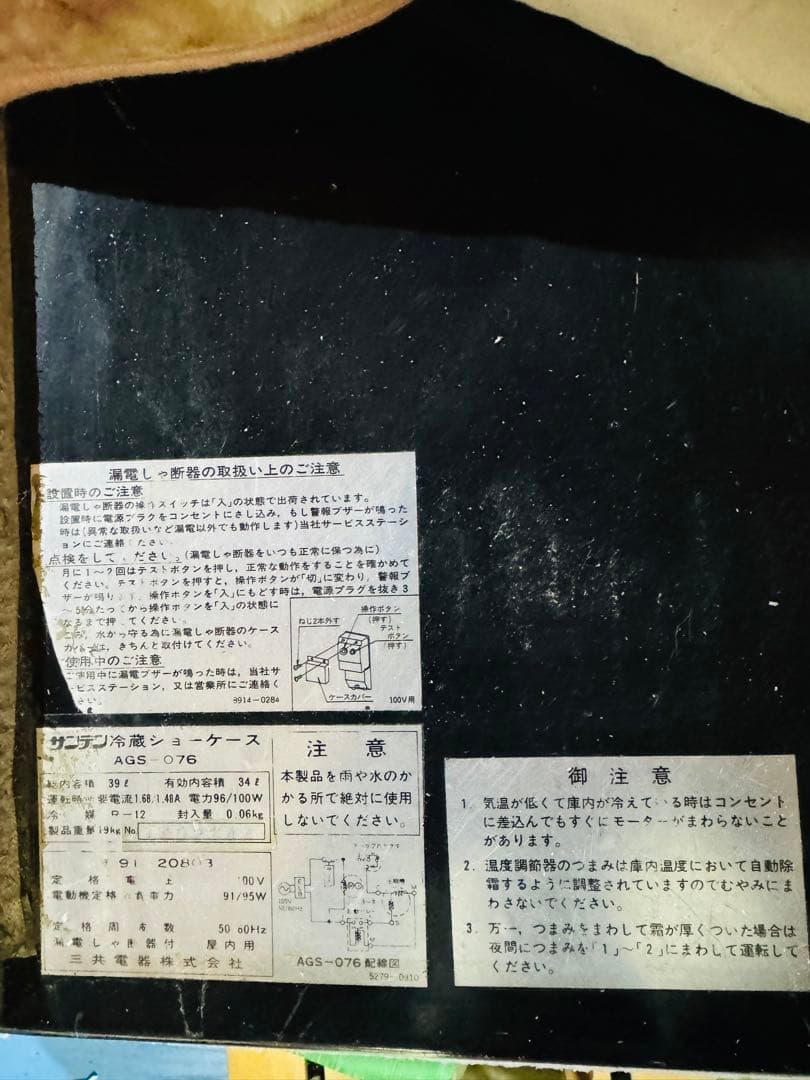 漏電しゃ断器の取扱い上のご注意
設置時のご注意
漏電しゃ断器の操作スイッチは「入」の状態で出荷されています。
設置時に電源プラグをコンセントにさし込み，もし警報ブザーが鳴った
時は(異常な取扱いなど漏電以外でも動作します)当社サービスステーシ
ョンにご連絡ください。
点検をしてください。(漏電しゃ断器をいつも正常に保つ為に)
月に1～2回はテストボタンを押し，正常な動作をすることを確かめて
ください。テストボタンを押すと，操作ボタンが「切」に変わり，警報ブ
ザーが鳴ります。操作ボタンを「入」にもどす時は，電源プラグを抜き3
～5分たってから操作ボタンを「入」の状態に
なるまで押してください。
水から守る為に漏電しゃ断器のケース
カバーは，きちんと取付けてください。
使用中のご注意
ご使用中に漏電ブザーが鳴った時は，当社サ
ービスステーション，又は営業所にご連絡く
ださい。
8914-0284
ねじ2本外す
操作ボタン
(押す)
テスト
ボタン
(押す)
ケースカバー
100V用
サンデン冷蔵ショーケース
AGS-076
総内容積 39ℓ 有効内容積 34ℓ
電流1.68/1.48A 電力96/100W
冷媒 R-12 封入量 0.06kg
製品重量19kg No.
91 20803
定格電圧 100V
91/95W
定格周波数 50 60Hz
漏電しゃ断器付 屋内用
三共電器株式会社
注意
本製品を雨や水のか
かる所で絶対に使用
しないでください。
AGS-076配線図
5279-0310
御注意
1. 気温が低くて庫内が冷えている時はコンセント
に差込んでもすぐにモーターがまわらないこと
があります。
2. 温度調節器のつまみは庫内温度において自動除
霜するように調整されていますのでむやみにま
わさないでください。
3. 万一，つまみをまわして霜が厚くついた場合は
夜間につまみを「1」～「2」にまわして運転して
ください。